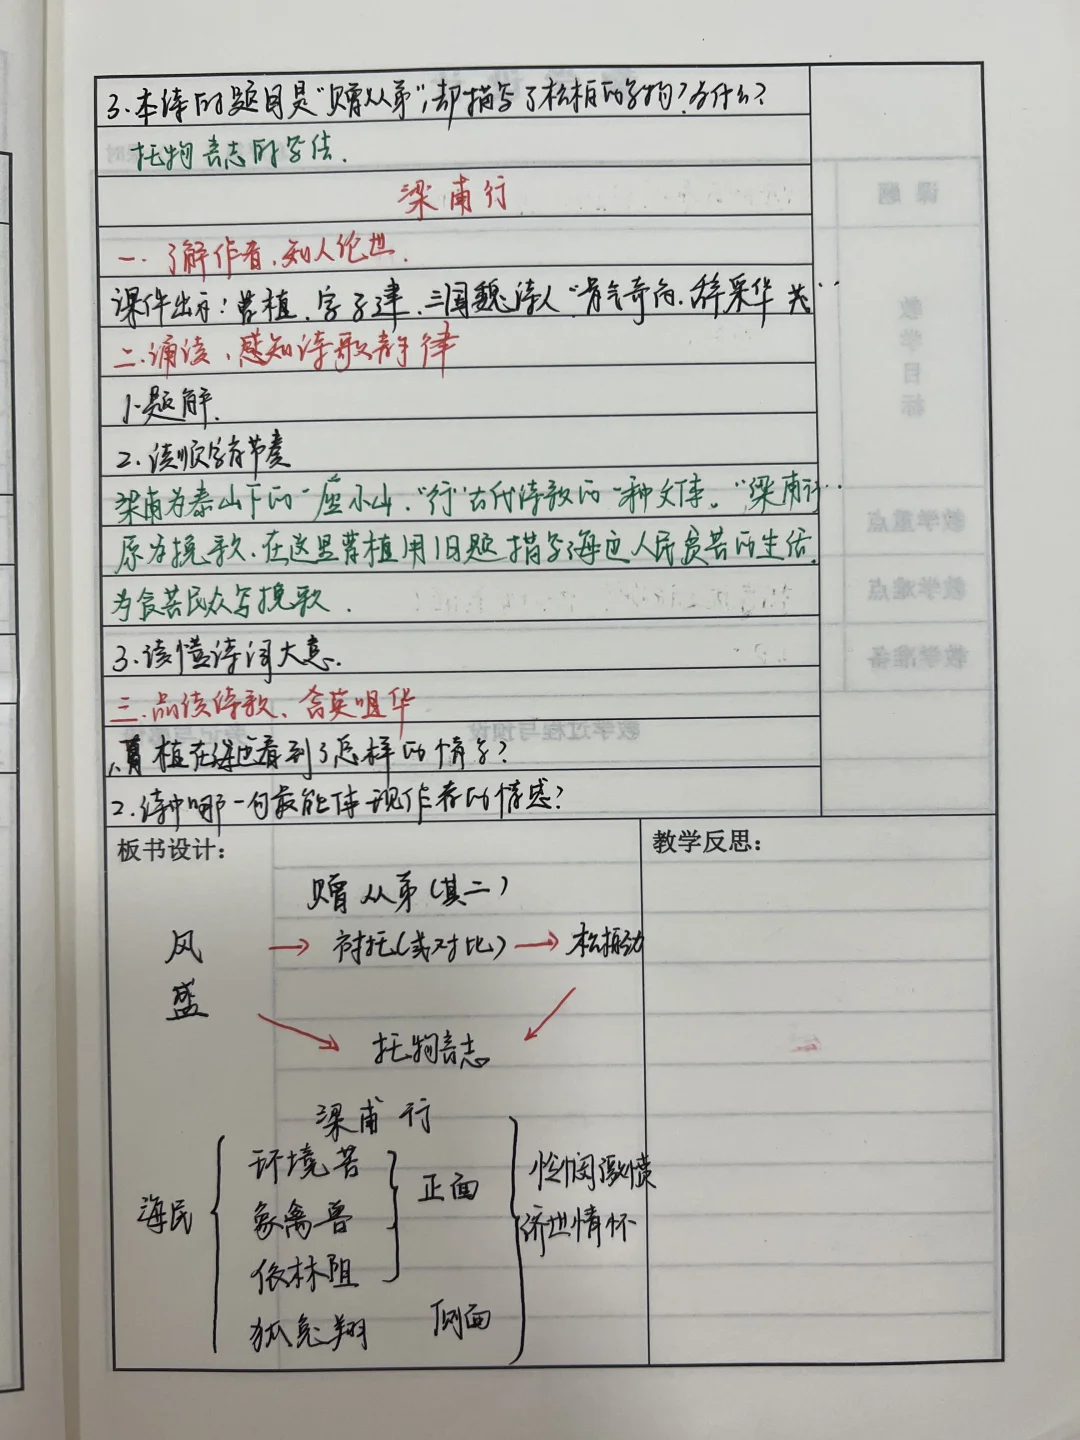 3.本诗的题目是“赠从弟”,却描写了松柏的事物?为什么?
托物言志的写法.
梁甫行
一.了解作者,知人论世.
课件出示:曹植,字子建,三国魏诗人“骨气奇高,辞采华茂..
二.诵读,感知诗歌韵律
1.题解.
2.读顺字有节奏
梁甫为泰山下的一座小山,“行”古代诗歌的一种文体。“梁甫行..
原为挽歌,在这里曹植用旧题描写海边人民贫苦的生活,
为贫苦民众写挽歌.
3.读懂诗词大意.
三.品读诗歌、含英咀华
1.曹植在海边看到了怎样的情景?
2.诗中哪一句最能体现作者的情感?
板书设计:
教学反思:
赠从弟(其二)
风 → 衬托(或对比) → 松柏劲
盛
托物言志
梁甫行
环境苦
海民 象禽兽 正面 怜悯激愤
依林阻 济世情怀
狐兔翔 侧面